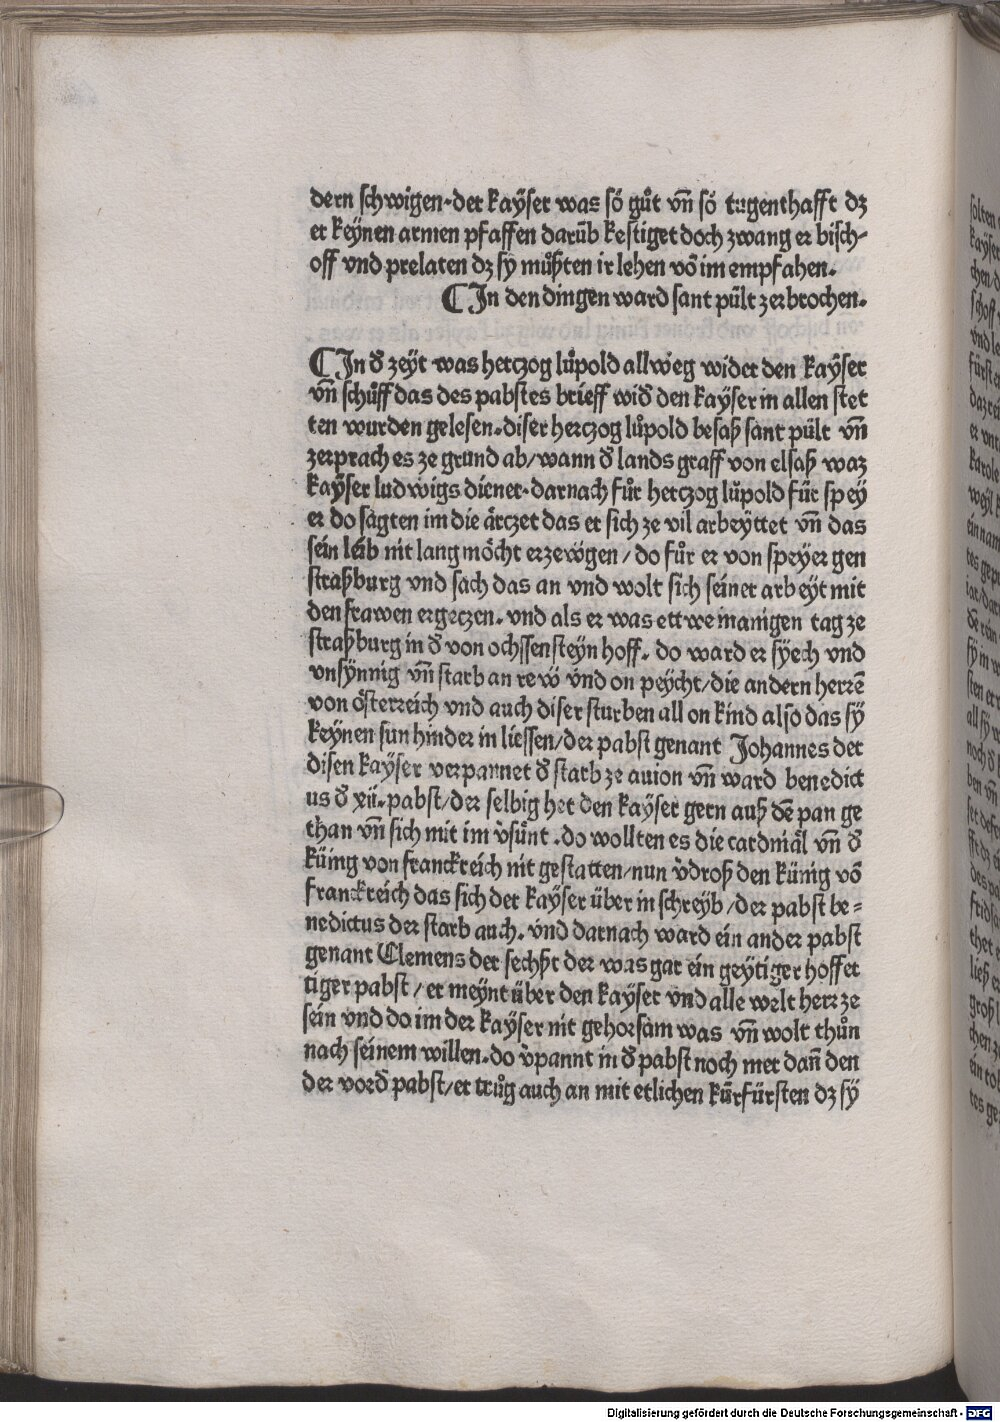 dern schwigen·der kaÿser was sö gůt vn̄ sö tugenthafft dz
er keÿnen armen pfaffen darūb kestiget doch zwang er bisch⸗
off vnd prelaten dz sy můßten ir lehen vō im empfahen.
⸿In den dingen ward sant pült zerbrochen.
⸿In d̕ zeÿt was herczog lůpold allweg wider den kaÿser
vn̄ schůff das des pabstes brieff wid̕ den kaÿser in allen stet
ten wurden gelesen.diser herczog lůpold besaß sant pült vn̄
zerprach es ze grund ab/wann d̕ lands graff von elsaß waz
kaÿser ludwigs diener·darnach fůr herczog lůpold für speÿ
er do sagten im die ärczet das er sich ze vil arbeÿttet vn̄ das
sein leib nit lang möcht erzewgen/do fůr er von speÿer gen
straßburg vnd sach das an vnd wolt sich seiner arbeÿt mit
den frawen ergeczen.vnd als er was ettwe manigen tag ze
straßburg in d̕ von ochssensteÿn hoff. do ward er sÿech vnd
vnsÿnnig vn̄ starb an rew vnd on peÿcht/die andern herrē
von österreich vnd auch diser sturben all on kind also das sÿ
keÿnen sun hinder in liessen/der pabst genant Johannes der
disen kaÿser verpannet d̕ starb ze auion vn̄ ward benedict
us d̕ xii.pabst/der selbig het den kaÿser gern auß dē pan ge
than vn̄ sich mit im v̕sůnt.do wollten es die cardinäl vn̄ d̕
künig von franckreich nit gestatten/nun v̕droß den künig vō
franckreich das sich der kaÿser über in schreÿb/der pabst be⸗
nedictus der starb auch.vnd darnach ward ein ander pabst
genant Clemens der sechßt der was gar ein geÿtiger hoffer
tiger pabst/er meÿnt über den kaÿser vnd alle welt herr ze
sein vnd do im der kaÿser nit gehorsam was vn̄ wolt thůn
nach seinem willen.do v̕pannt in d̕ pabst noch mer dan̄ den
der vord̕ pabst/er trůg auch an mit etlichen kurfürsten dz sÿ
Digitalisierung gefördert durch die Deutsche Forschungsgemeinschaft - DFG